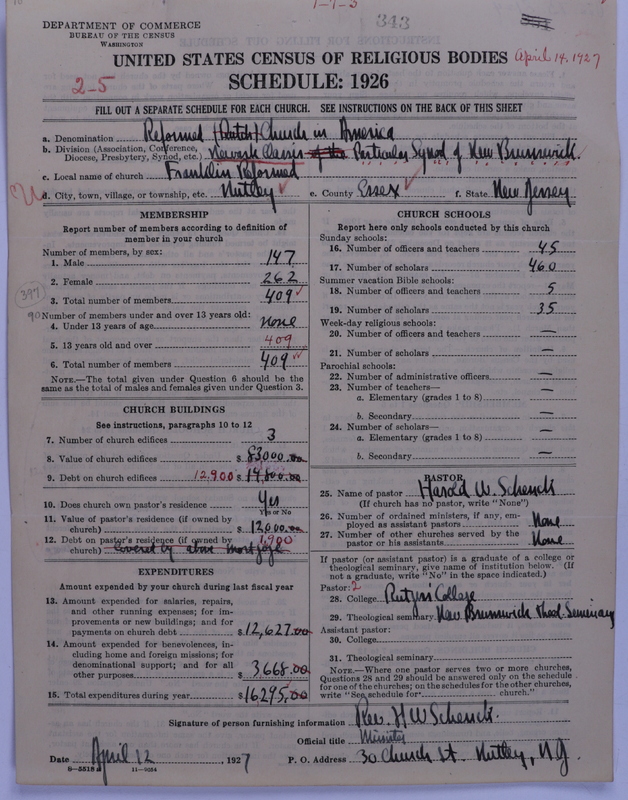 1-7-3
343
DEPARTMENT OF COMMERCE
BUREAU OF THE CENSUS
WASHINGTON
UNITED STATES CENSUS OF RELIGIOUS BODIES April 14. 1927
2-5
SCHEDULE: 1926
FILL OUT A SEPARATE SCHEDULE FOR EACH CHURCH. SEE INSTRUCTIONS ON THE BACK OF THIS SHEET
a. Denomination Reformed (Dutch) Church in America
b. Division (Association, Conference, Diocese, Presbytery, Synod, etc.) Newark Classis of the Particular Synod of New Brunswick.
c. Local name of church Franklin Reformed
d. City, town, village, or township, etc. Nutley e. County Essex f. State New Jersey
MEMBERSHIP
Report number of members according to definition of
member in your church
Number of members, by sex:
1. Male 147
2. Female 262
3. Total number of members 409
397
90
Number of members under and over 13 years old:
4. Under 13 years of age none
5. 13 years old and over 409
6. Total number of members 409
NOTE.—The total given under Question 6 should be the
same as the total of males and females given under Question 3.
CHURCH BUILDINGS
See instructions, paragraphs 10 to 12
7. Number of church edifices 3
8. Value of church edifices $ 83000.00
9. Debt on church edifices 12,900 $ 14,800.00
10. Does church own pastor's residence Yes
Yes or No
11. Value of pastor's residence (if owned by
church) $ 12,000.00
12. Debt on pastor's residence (if owned by 1,900
church) covered by above mortgage
EXPENDITURES
Amount expended by your church during last fiscal year
13. Amount expended for salaries, repairs,
and other running expenses; for im-
provements or new buildings; and for
payments on church debt $ 12,627.00
14. Amount expended for benevolences, in-
cluding home and foreign missions; for
denominational support; and for all
other purposes 3,668.00
15. Total expenditures during year $ 16295.00
CHURCH SCHOOLS
Report here only schools conducted by this church
Sunday schools:
16. Number of officers and teachers 45
17. Number of scholars 460
Summer vacation Bible schools:
18. Number of officers and teachers 5
19. Number of scholars 35
Week-day religious schools:
20. Number of officers and teachers —
21. Number of scholars —
Parochial schools:
22. Number of administrative officers —
23. Number of teachers—
a. Elementary (grades 1 to 8) —
b. Secondary —
24. Number of scholars—
a. Elementary (grades 1 to 8) —
b. Secondary —
PASTOR
25. Name of pastor Harold W. Schenck
(If church has no pastor, write "None")
26. Number of ordained ministers, if any, em-
ployed as assistant pastors None
27. Number of other churches served by the
pastor or his assistants None
If pastor (or assistant pastor) is a graduate of a college or
theological seminary, give name of institution below. (If
not a graduate, write "No" in the space indicated.)
Pastor: 2
28. College Rutgers College
29. Theological seminary New Brunswick Theol. Seminary
Assistant pastor:
30. College
31. Theological seminary
NOTE.—Where one pastor serves two or more churches,
Questions 28 and 29 should be answered only on the schedule
for one of the churches; on the schedules for the other churches,
write "See schedule for church."
Signature of person furnishing information Rev. H W Schenck.
Official title Minister
Date April 12 1927 P. O. Address 30 Church St Nutley, N.J.
8-5518 11-9054